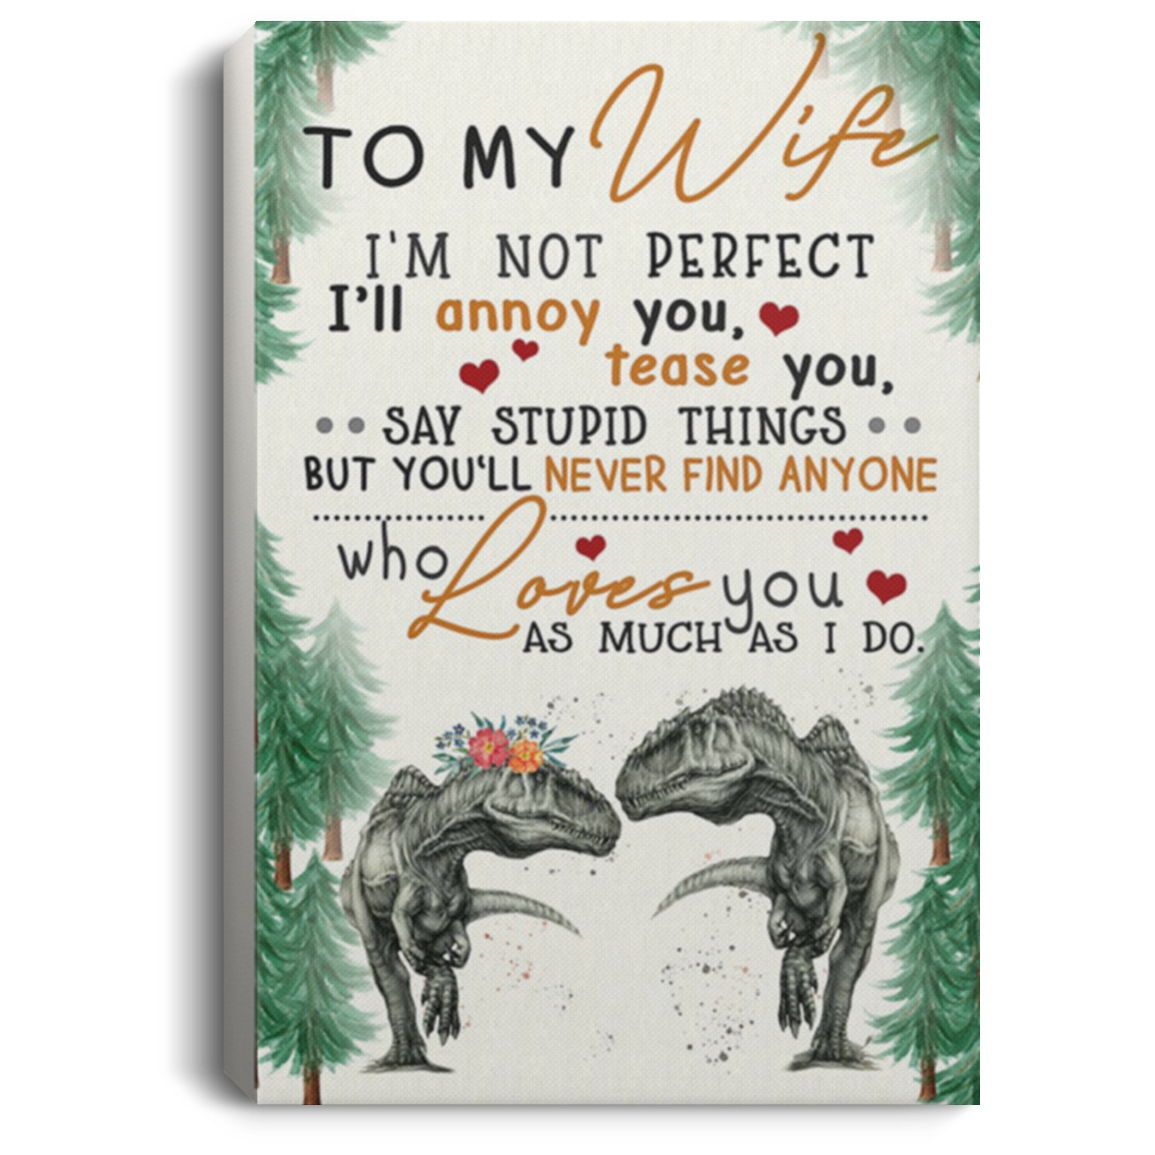 TO MY Wife
I'M NOT PERFECT
I'll annoy you,
tease you,
SAY STUPID THINGS
BUT YOU'LL NEVER FIND ANYONE
who Loves you
AS MUCH AS I DO.